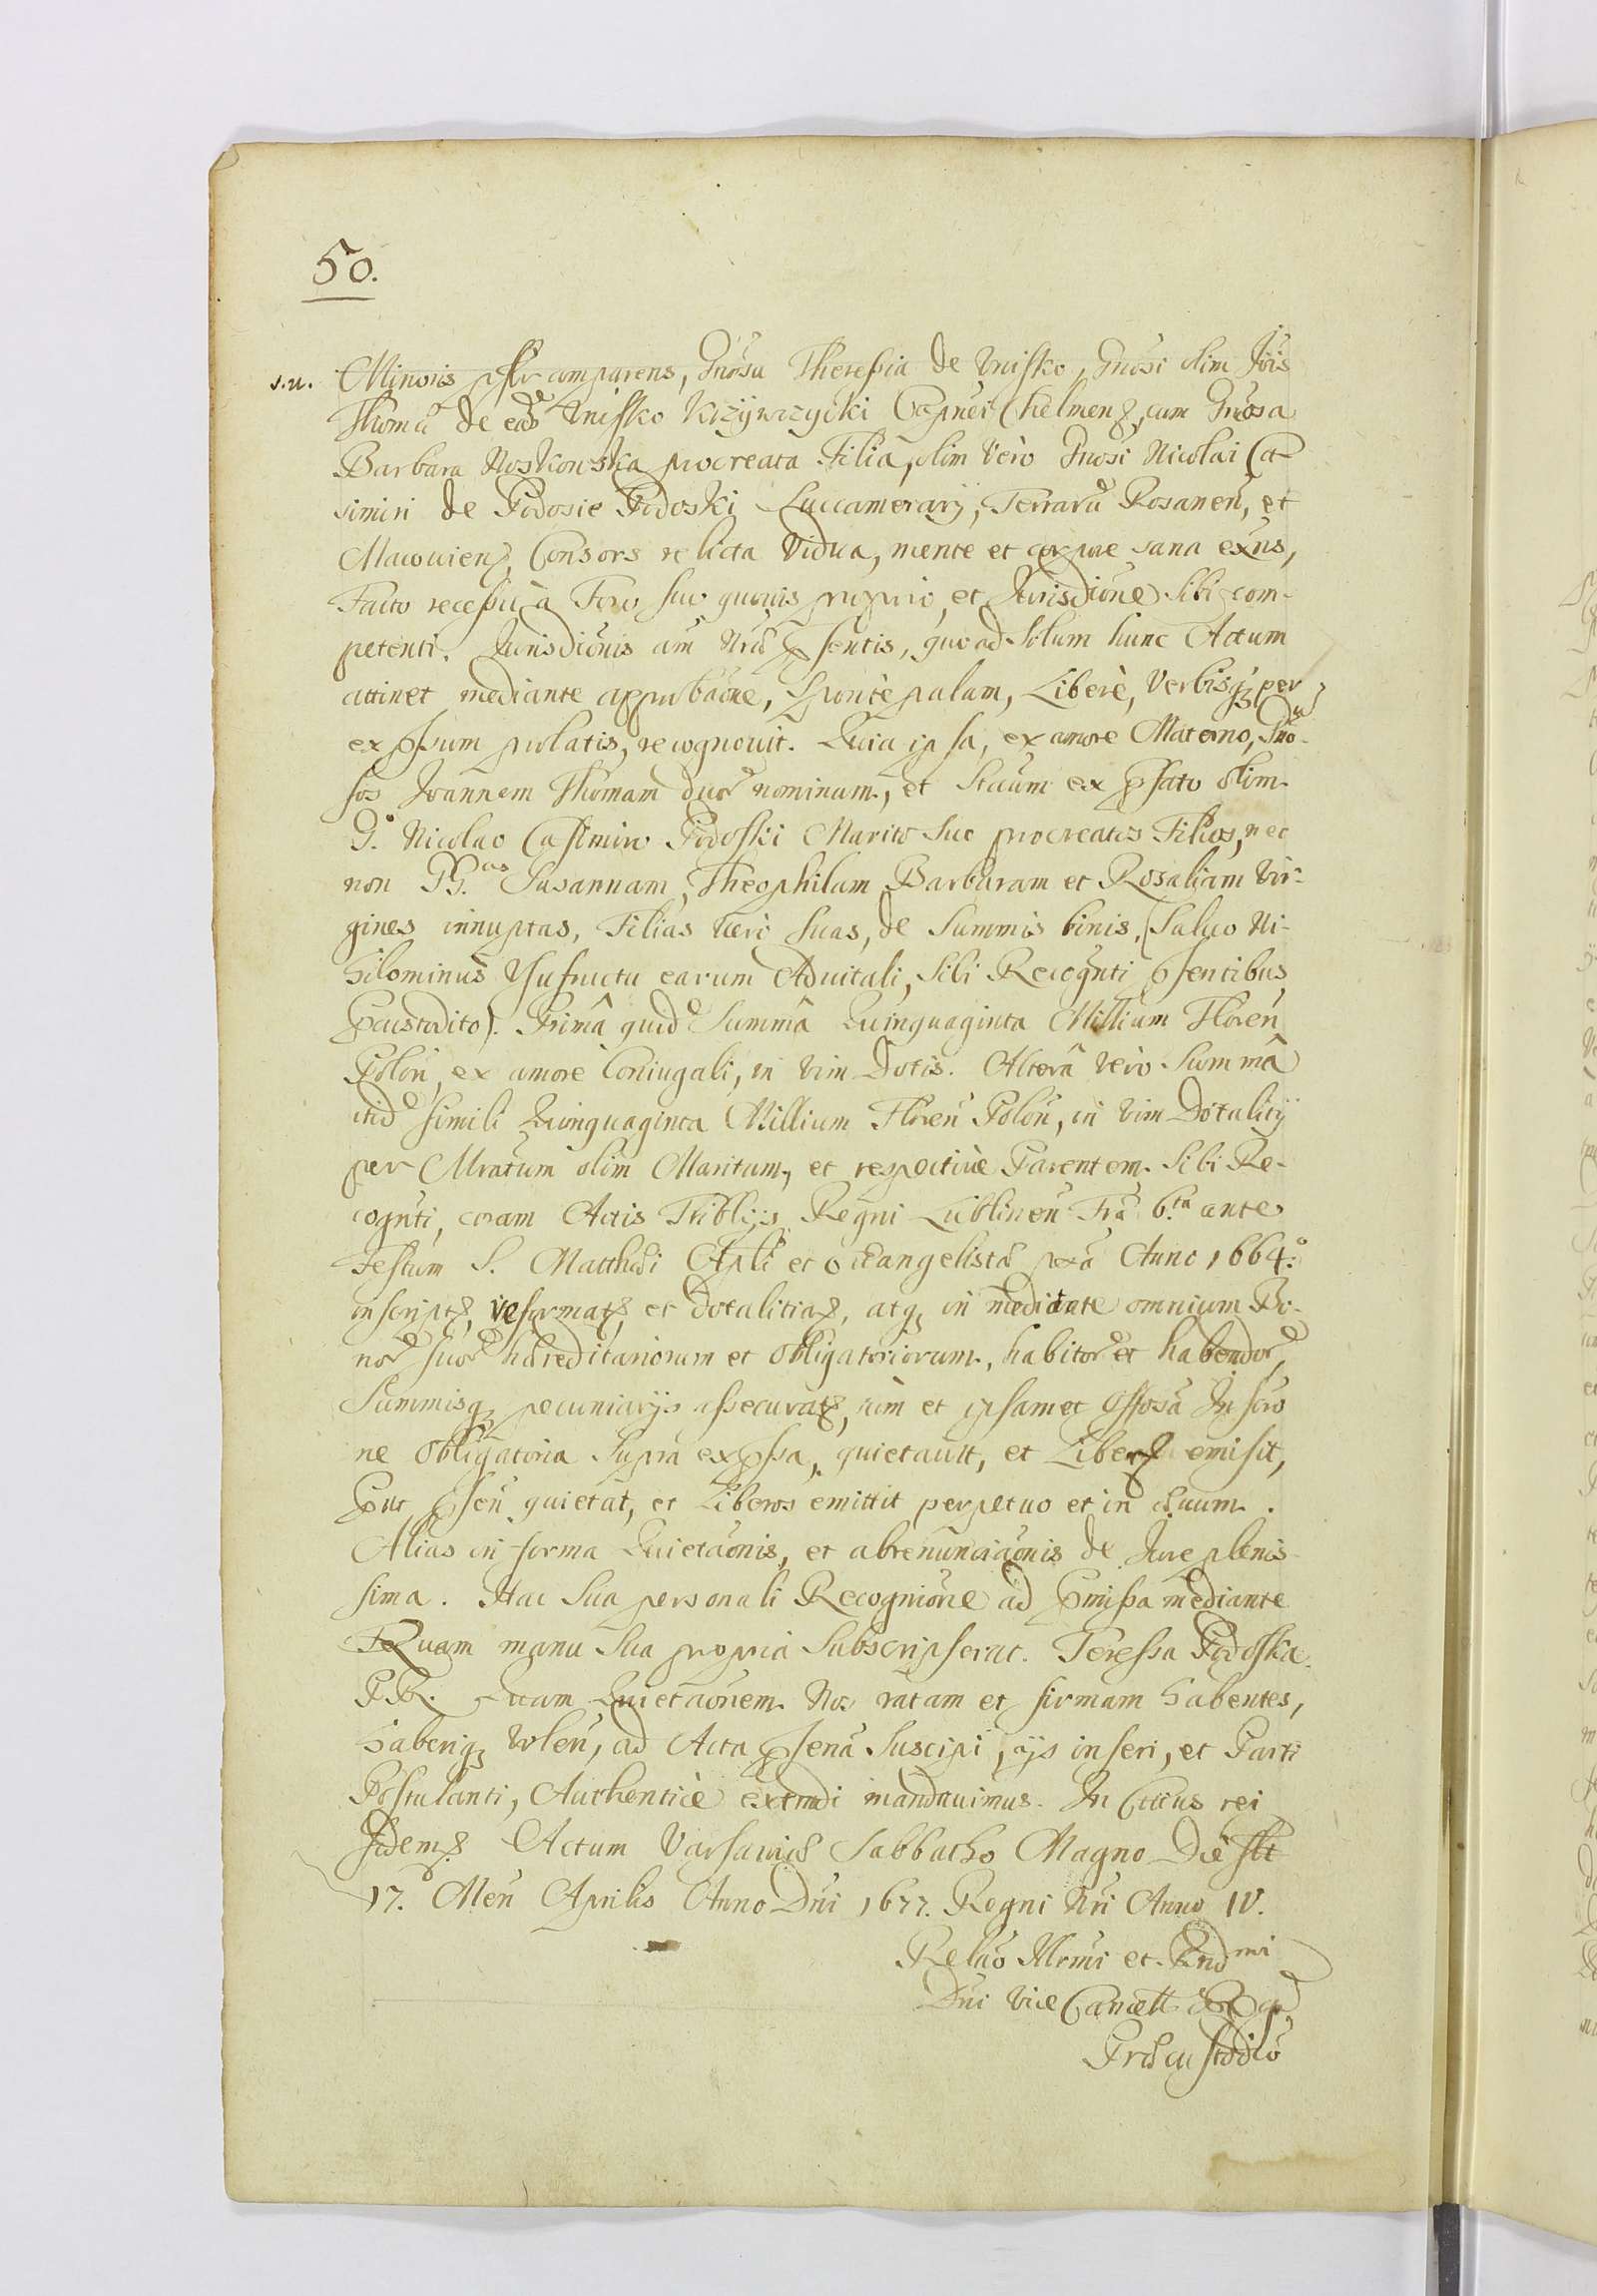 50.
s.n. Minoris pslr comparens, Gnosa Theressia de Vnisko, Gnosi olim Jois
Thoma de eod Vnisko Krzywrzycki Capnei Chelmens, cum Gnosa
Barbara Noskowska procreata Filia, olim Vero Gnosi Nicolai Ca-
simiri de Podosie Podoski Succamerarij, Terraru Rosanen, et
Macovien, Consors relicta Vidua, mente et corpore sana exns,
Facto recessu à Foro suo quovis proprio et Jurisdione sibi com-
petenti. Jurisdionis am Nra psentis, quoad solum hunc Actum
attinet mediante approbaone, Spontè palam, Liberè, Verbisq per
expssum prolatis, recognovit. Quia ipsa, ex amore Materno, Gno-
sos Joannem Thomam duor nominum, et Stanum ex psato olim
G.o Nicolao Casimiro Podoski Marito suo procreatos Filios, nec
non GG.as Susannam, Theophilam Barbaram et Rosaliam Vir-
gines innuptas, Filias Verò suas, de Summis binis, (Salvo Ni-
hilominus Vsufructu earum Advitali, Sibi Recognti psentibus
pcustodito). Primâ quid Summâ Quinquaginta Millium Floren
Polon, ex amore Coniugali, in vim Dotis. Alterâ verò Summâ
itid simili Quinquaginta Millium Floren Polon, in vim Dotalitij
per Mratum olim Maritum, et respectivè Parentem Sibi Re-
cognti, coram Actis Tribliis Regni Lublinen Fra 6.ta ante
Festum S. Matthæi Apli et Evangelistæ pxa Anno 1664.o
inscript, reformat, et dotalitias, atq in medietate omnium Bo-
nor suor hæreditariorum et obligatoriorum, habitor et habendor,
Summisq pecuniarijs assecurat, tùm et ipsamet Inscrio
ne Obligatoria Supra expssa, quietavit, et Liberos emisit,
put psen quietat, et Liberos emittit perpetuo et in ævum.
Alias in forma Quietaonis, et abrenunciaonis de Jure plenis-
sima. Hac Sua personali Recognione ad pmissa mediante
Quam manu Sua propria Subscripserat. Teressa Podoska
Quam Quietaonem Nos ratam et firmam habentes,
haberiq volen, ad Acta psena Suscipi, ijs inseri, et Parti
Postulanti, Authenticè extradi mandavimus. In Cuius rei
fidem. Actum Varsaviæ Sabbatho Magno Die
17. Men Aprilis Anno Dni 1677. Regni Nri Anno IV.
Relao Illrmi et Rnd mi
Dni Vice Cancell